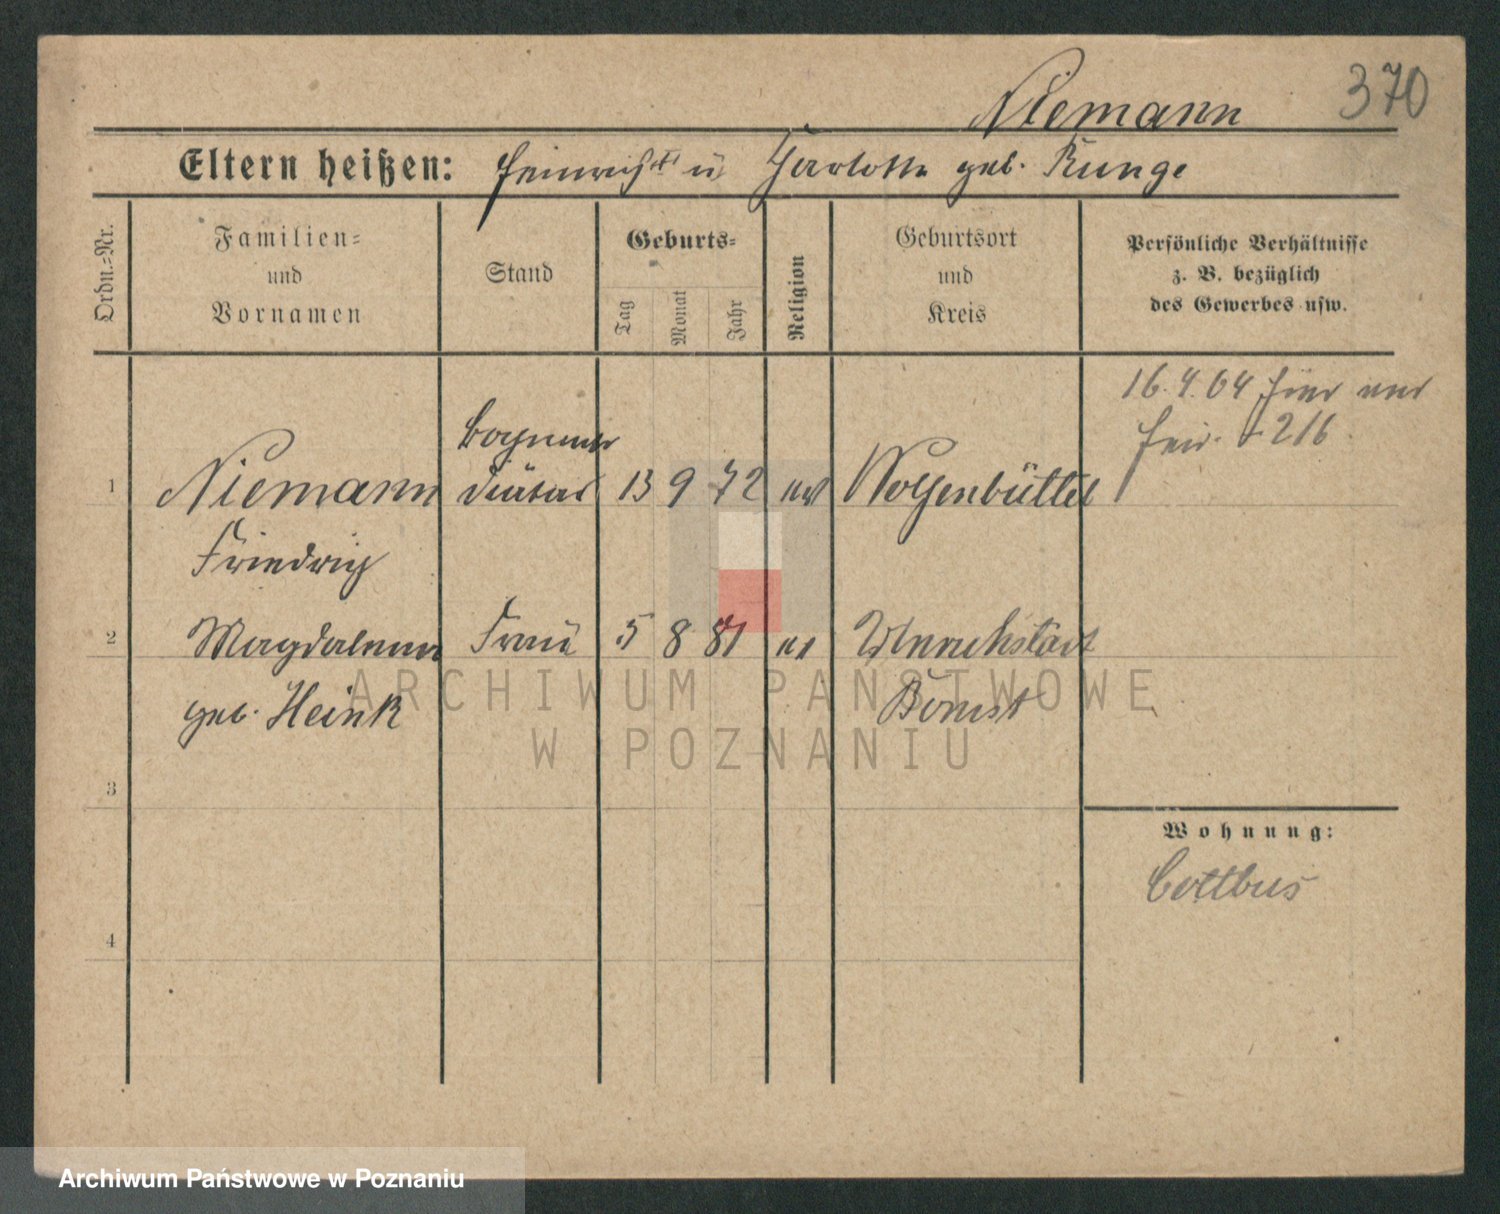 370
Niemann
Eltern heißen: Heinrich u Charlotte geb. Runge
Ordn.=Nr.
Familien=
und
Vornamen
Stand
Geburts=
Tag
Monat
Jahr
Religion
Geburtsort
und
Kreis
Persönliche Verhältnisse
z. B. bezüglich
des Gewerbes usw.
16.4.04
216
1 Niemann Diätar 13 9 72 Wolfenbüttel
Friedrich
2 Magdalena Frau 5 8 81 Unruhstadt
geb. Heink Bomst
3
Wohnung:
Cottbus
4
ARCHIWUM PAŃSTWOWE
W POZNANIU
Archiwum Państwowe w Poznaniu